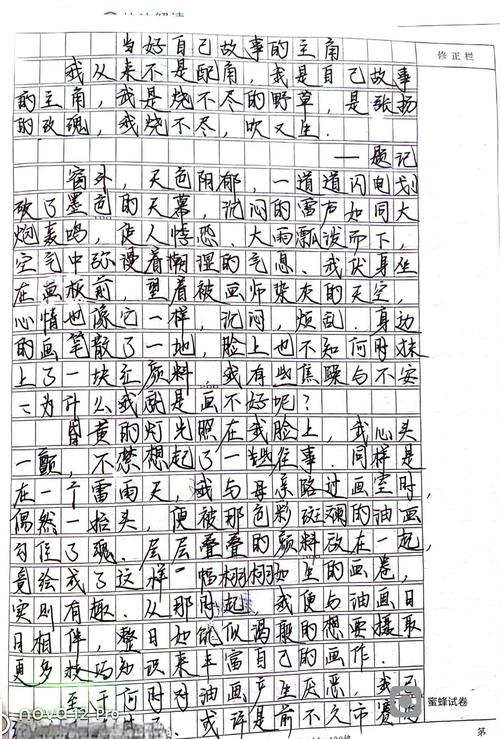 当好自己故事的主角
我从来不是配角，我是自己故事
的主角，我是烧不尽的野草，是张扬
的玫瑰，我烧不尽，吹又生。
——题记
窗外，天色阴郁，一道道闪电划
破了墨色的天幕，沉闷的雷声如同大
炮轰鸣，使人惊恐。大雨瓢泼而下，
空气中弥漫着潮湿的气息。我伏身坐
在画板前，望着被画师染灰的天空，
心情也像它一样，沉闷，烦乱。身边
的画笔散了一地，脸上也不知何时抹
上了一块红颜料，我有些焦躁与不安
：为什么我就是画不好呢？
昏黄的灯光照在我脸上，我心头
一颤，不禁想起了一些往事。同样是
在一个雷雨天，我与母亲路过画室时，
偶然一抬头，便被那色彩斑斓的油画
勾住了魂。层层叠叠的颜料放在一起，
竟绘成了这样一幅栩栩如生的画卷，
实则有趣。从那时起，我便与油画日
日相伴，整日如饥似渴般的想要摄取
更多技巧知识来丰富自己的画作。
至于何时对油画产生厌恶，我
或许是前不久市赛的
修正栏
蜜蜂试卷
第
vivo 12 Pro